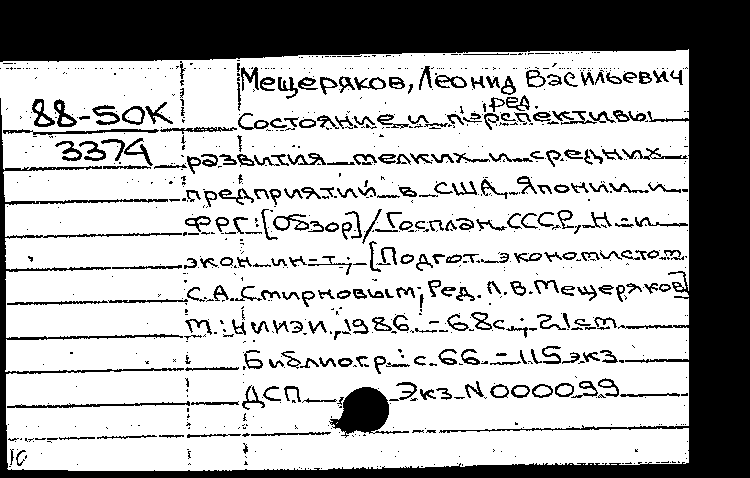 Мещеряков, Леонид Васильевич
ред.
88-50К Состояние и перспективы
3374 развития мелких и средних
предприятий в США, Японии и
ФРГ: [Обзор] / Госплан СССР, Н.-и.
экон. ин-т; [Подгот. экономистом
С.А. Смирновым; Ред. Л.В. Мещеряков]
М.: НИИЭИ, 1986. - 68с.; 21см.
Библиогр.: с.66. - 115экз
ДСП Экз N000099
10